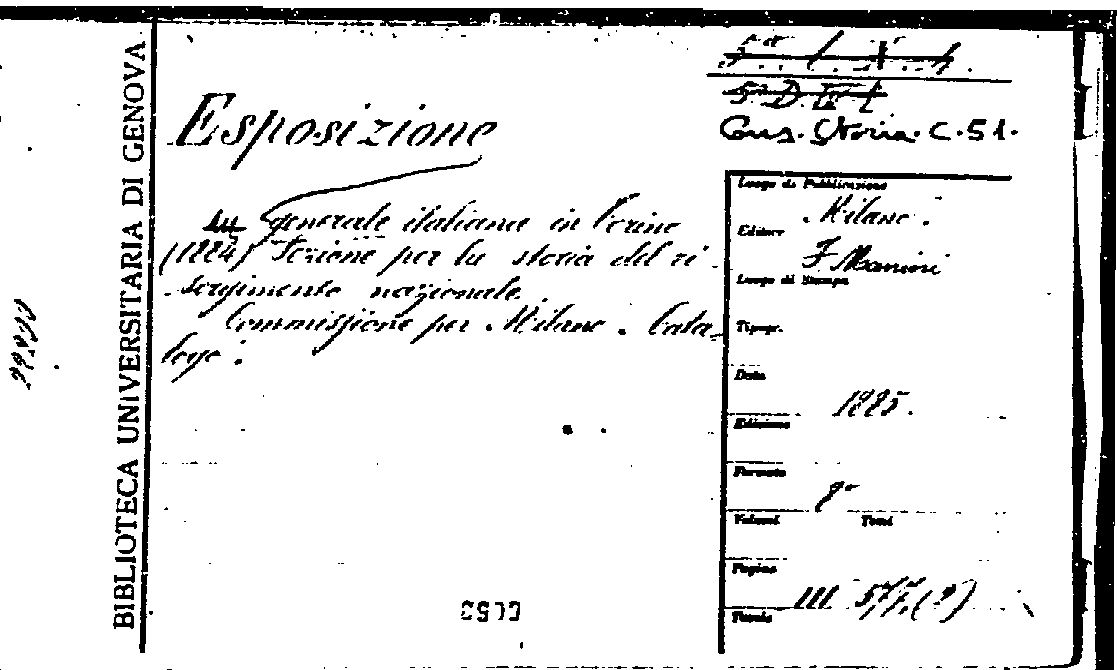 BIBLIOTECA UNIVERSITARIA DI GENOVA
Esposizione
generale italiana in Torino
(1884) Sezione per la storia del ri
sorgimento nazionale.
Commissione per Milano. Cata-
logo.
5ª D. IV
Cons. Storia. C. 51.
Luogo di Pubblicazione
Milano.
Editore
Luogo di Stampa
Tipogr.
Data
1885.
Edizione
Formato
8°
Volumi Tomi
Pagine
III
Tavole